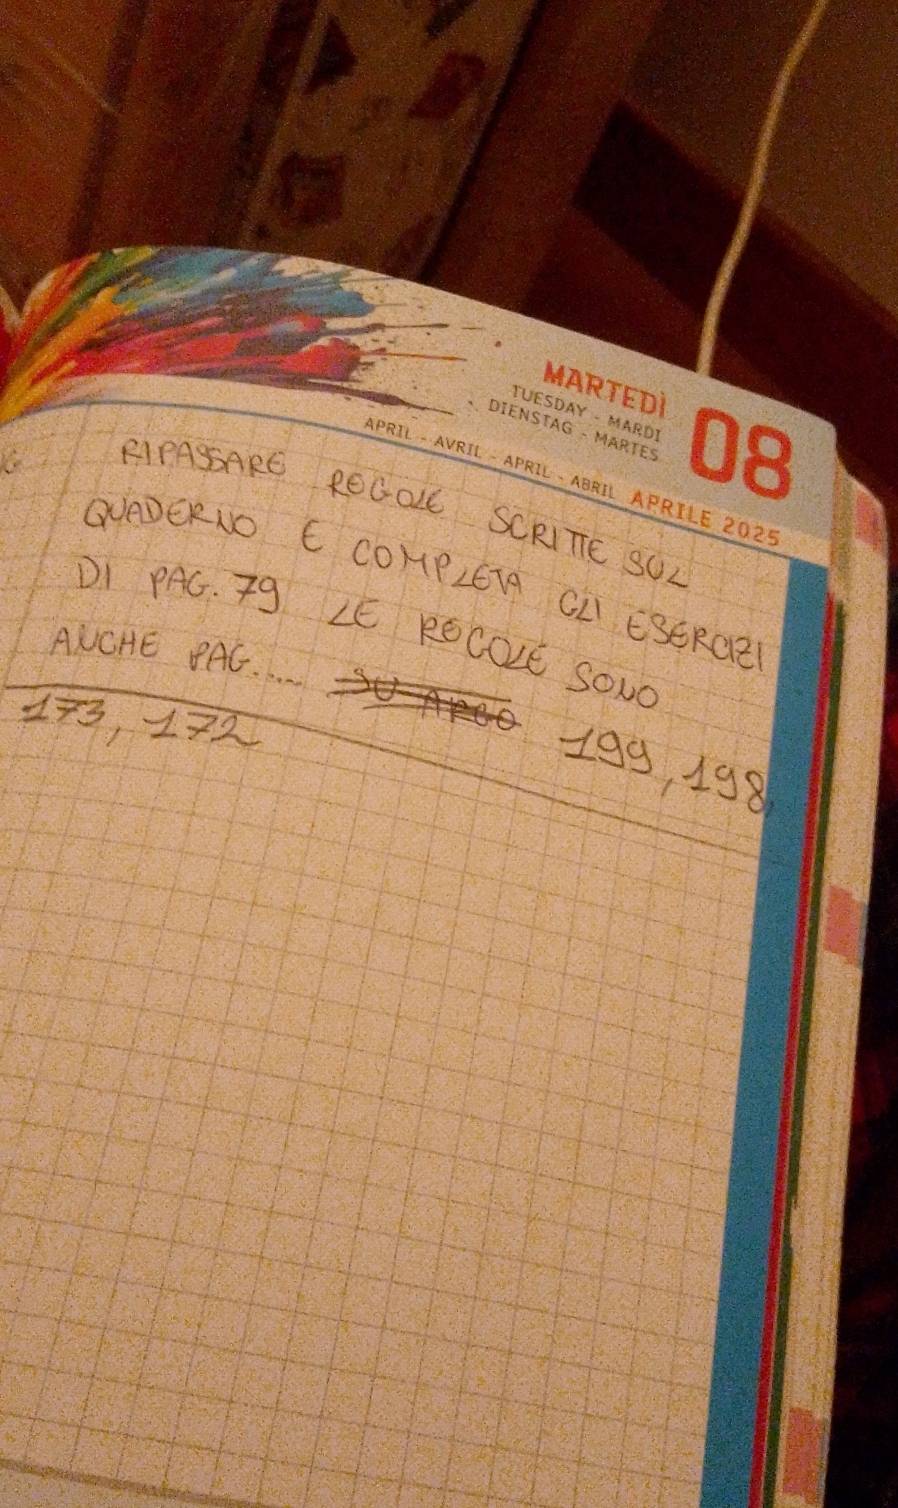 MARTEDÌ
TUESDAY - MARDI
DIENSTAG - MARTES
08
APRIL - AVRIL - APRIL - ABRIL APRILE 2025
RIPASSARE REGOLE SCRITTE SUL
QUADERNO E COMPLETA GLI ESERCIZI
DI PAG. 79 LE REGOLE SONO
ANCHE PAG.... SU ARGO 199, 198,
173, 172